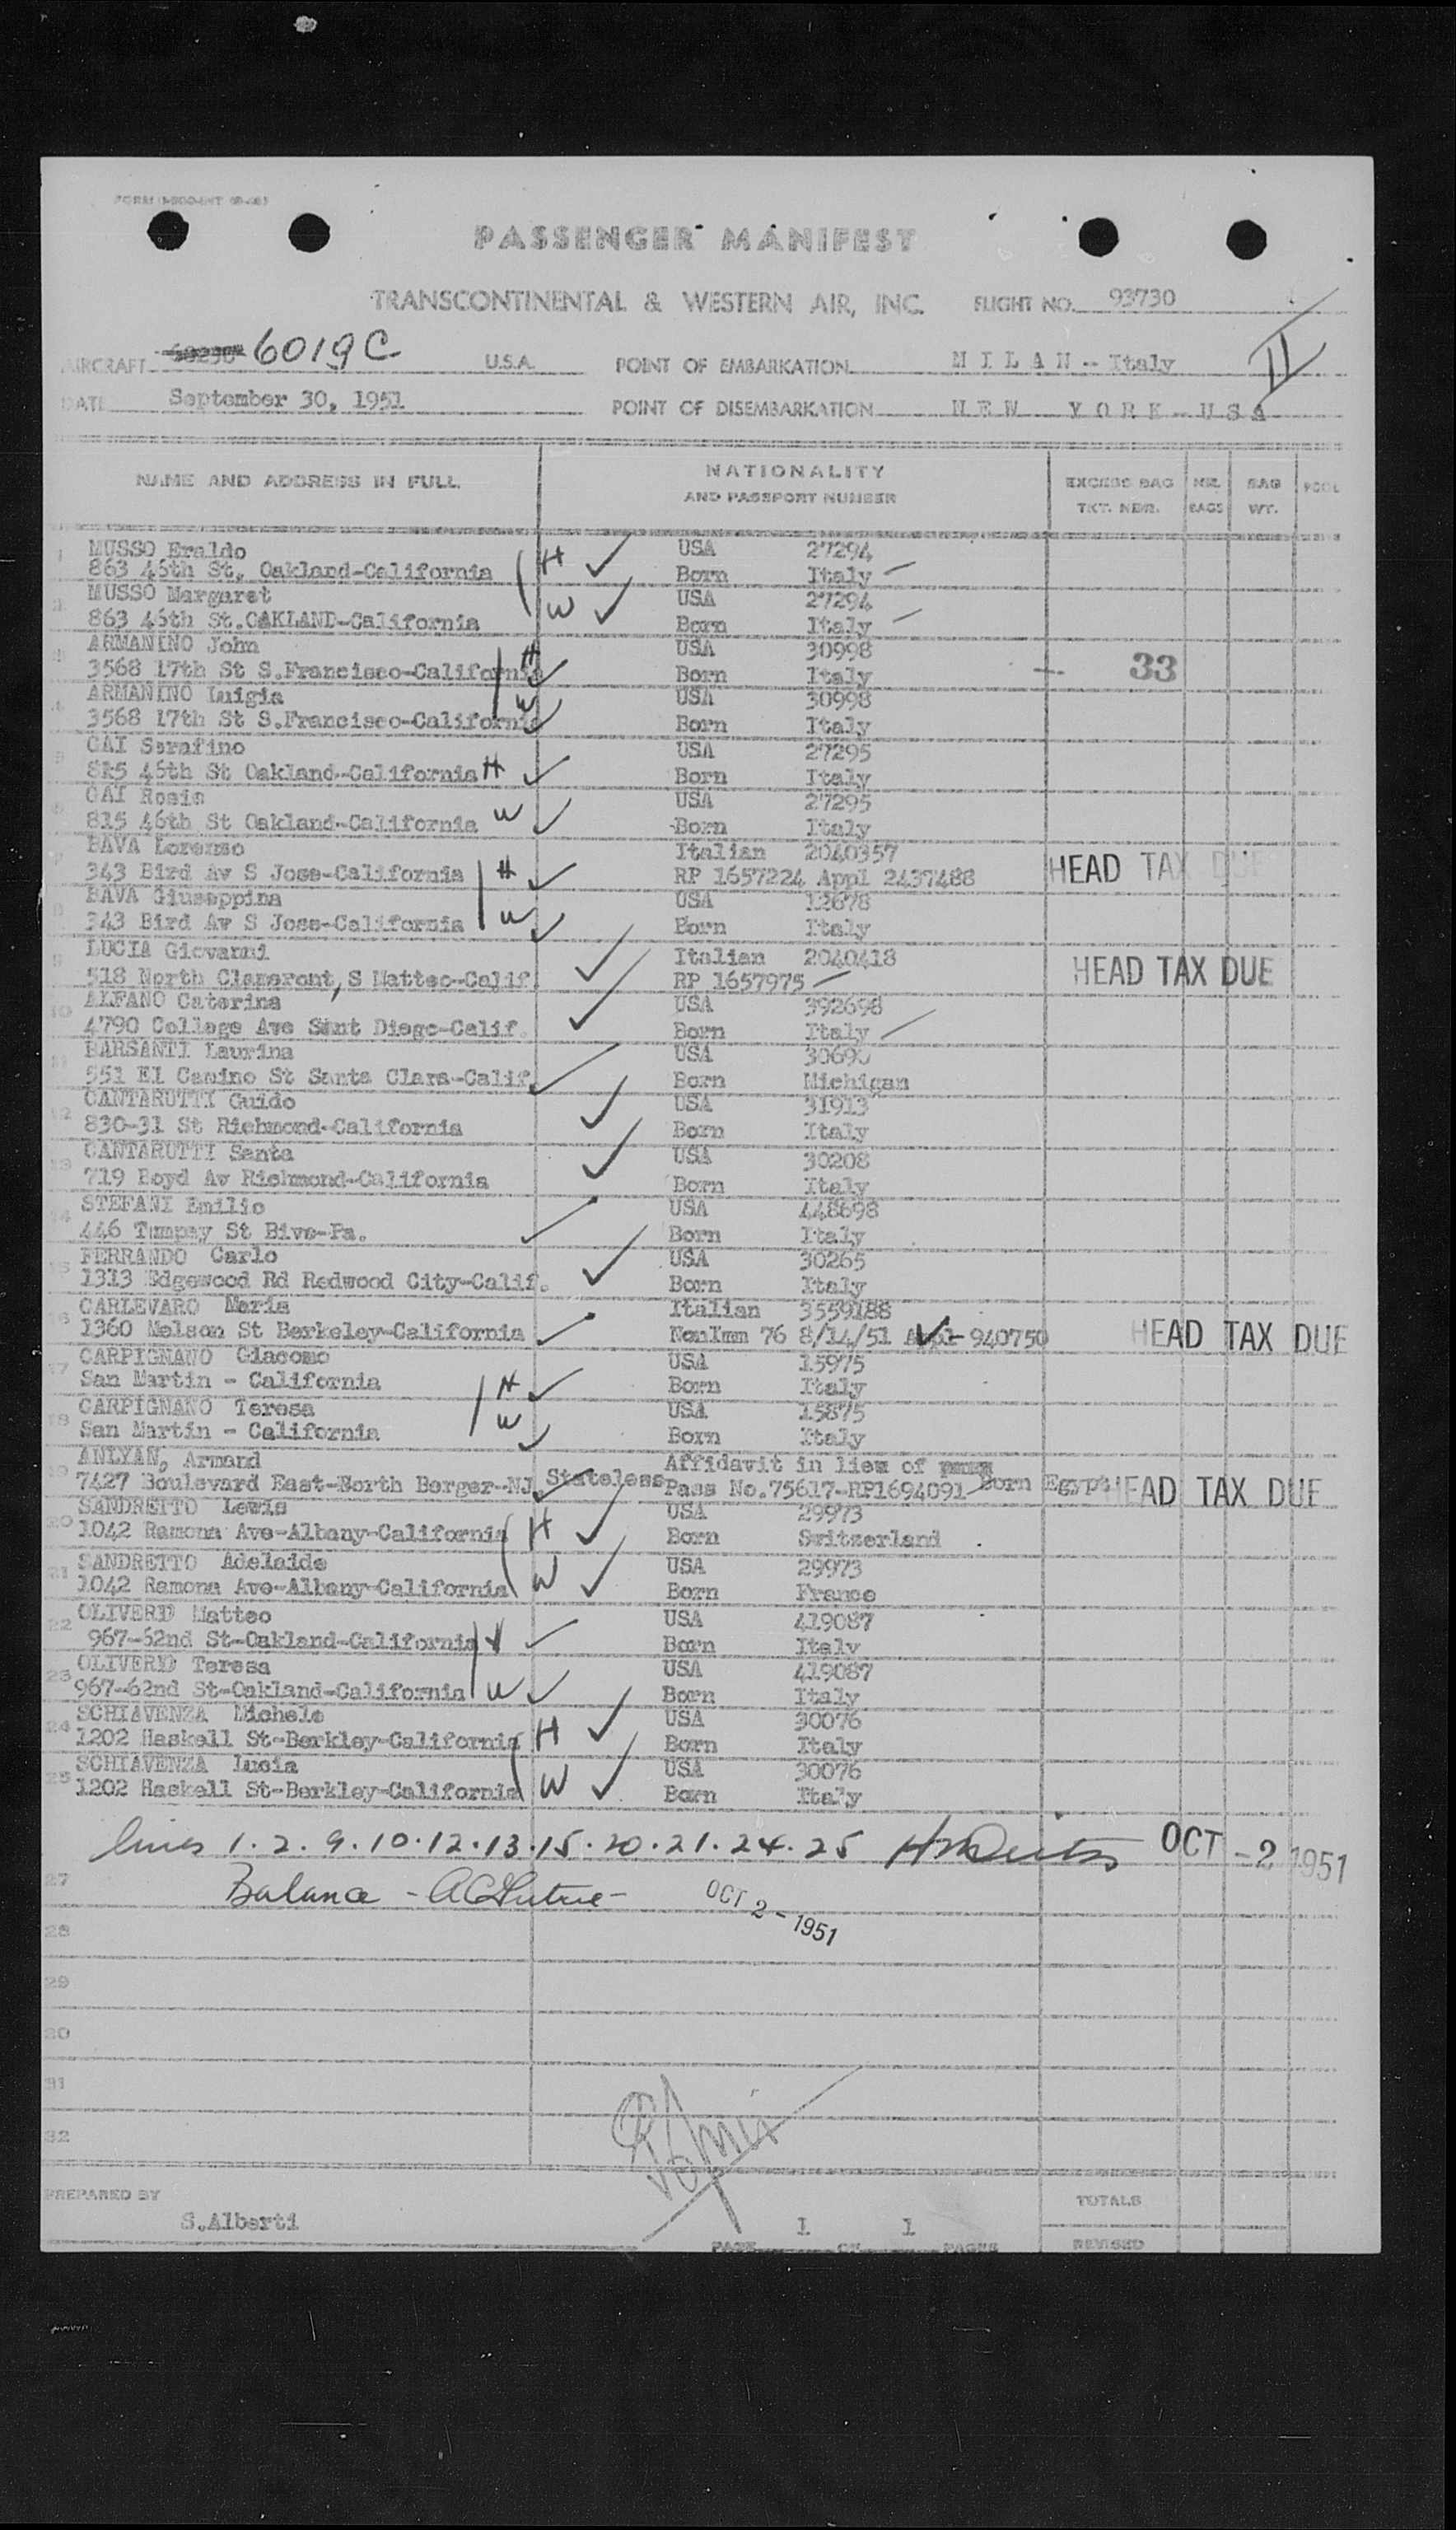 PASSENGER MANIFEST
TRANSCONTINENTAL & WESTERN AIR, INC. FLIGHT NO. 93730
AIRCRAFT 6019C U.S.A. POINT OF EMBARKATION MILAN -- Italy II
DATE September 30, 1951 POINT OF DISEMBARKATION NEW YORK - USA
NAME AND ADDRESS IN FULL NATIONALITY AND PASSPORT NUMBER EXCESS BAG TKT. NBR. NR. BAGS BAG WT. POOL
1 MUSSO Eraldo USA 27294
863 46th St, Oakland-California H Born Italy
2 MUSSO Margaret USA 27294
863 46th St.OAKLAND-California W Born Italy
ARMANINO John USA 30998
3568 17th St S.Francisco-California H Born Italy 33
ARMANINO Luigia USA 30998
3568 17th St S.Francisco-California W Born Italy
CAI Serafino USA 27295
815 46th St Oakland-California H Born Italy
CAI Rosie USA 27295
815 46th St Oakland-California W Born Italy
BAVA Lorenzo Italian 2040357
343 Bird Av S Jose-California H RP 1657224 Appl 2437488 HEAD TAX DUE
BAVA Giuseppina USA 12678
343 Bird Av S Jose-California W Born Italy
9 LUCIA Giovanni Italian 2040418
518 North Claremont, S Matteo-Calif. RP 1657975 HEAD TAX DUE
10 ALFANO Caterina USA 392698
4790 College Ave Sant Diego-Calif. Born Italy
11 BARSANTI Laurina USA
551 El Camino St Santa Clara-Calif. Born Michigan
12 CANTARUTTI Guido USA 31913
830-31 St Richmond-California Born Italy
13 CANTARUTTI Santa USA 30208
719 Boyd Av Richmond-California Born Italy
14 STEFANI Emilio USA 448698
446 St Pa. Born Italy
15 FERRANDO Carlo USA 30265
1313 Edgewood Rd Redwood City-Calif. Born Italy
CARLEVARO Maria Italian 3559188
1360 Nelson St Berkeley-California NonImm 76 8/14/51 Appl 940750 HEAD TAX DUE
17 CARPIGNANO Giacomo USA 15975
San Martin - California H Born Italy
18 CARPIGNANO Teresa USA 15875
San Martin - California W Born Italy
19 ANLYAN, Armand Affidavit in lieu of
7427 Boulevard East-North Berger-NJ Stateless Pass No.75617-RP1694091 Born Egypt HEAD TAX DUE
20 SANDRETTO Lewis USA 29973
1042 Ramona Ave-Albany-California H Born Switzerland
21 SANDRETTO Adelaide USA 29973
1042 Ramona Ave-Albany-California W Born France
22 OLIVERI Matteo USA 419087
967-62nd St-Oakland-California H Born Italy
23 OLIVERI Teresa USA 419087
967-62nd St-Oakland-California W Born Italy
24 SCHIAVENZA Michele USA 30076
1202 Haskell St-Berkley-California H Born Italy
25 SCHIAVENZA Lucia USA 30076
1202 Haskell St-Berkley-California W Born Italy
lines 1.2.9.10.12.13.15.20.21.24.25 OCT - 2 1951
27 Balance - OCT 2 - 1951
28
29
30
31
32
PREPARED BY TOTALS
S.Alberti
PAGE 1 OF 1 PAGES REVISED